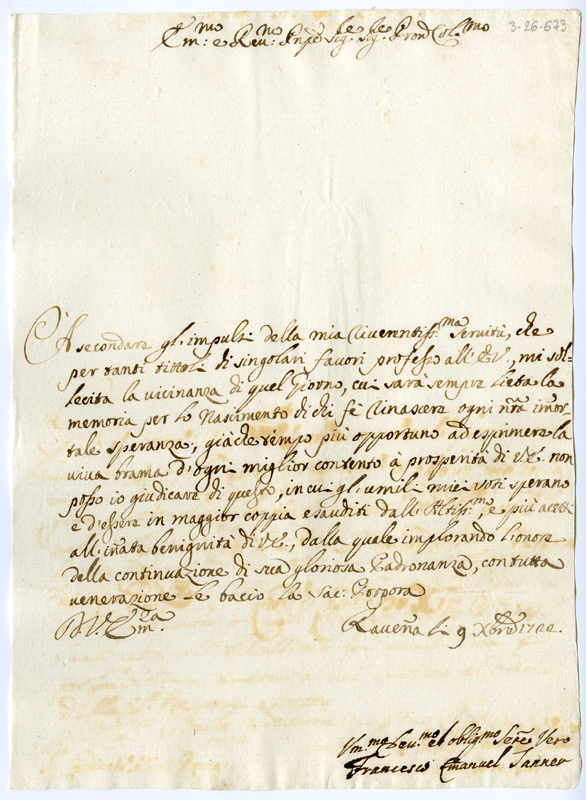 3-26-673
Em:mo e Rev:mo Prnpe Sig:re Sig:re Pron Col:mo
A secondare gl'impulsi della mia riverentiss:ma servitù, che
per tanti tittoli di singolari favori professo all'EV., mi sol-
lecita la vicinanza di quel Giorno, cui sarà sempre lieta la
memoria per lo Nascimento di chi fè rinascere ogni nr̃a imor-
tale speranza; giàche tempo più opportuno ad esprimere la
viva brama d'ogni miglior contento à prosperità di VE. non
posso io giudicare di questo, in cui gl'umili miei voti sperano
e d'essere in maggior coppia esauditi dall'Altiss:mo, e più acetti
all'inata benignità di VE., dalla quale implorando l'onore
della continuazione di sua gloriosa Padronanza, con tutta
venerazione le bacio la Sac: Porpora
D.V. Em:za
Ravena li 9 Xbre 1722.
Vm:mo Dev:mo et oblig:mo Serre Vero
Francesco Emanuel Tanner